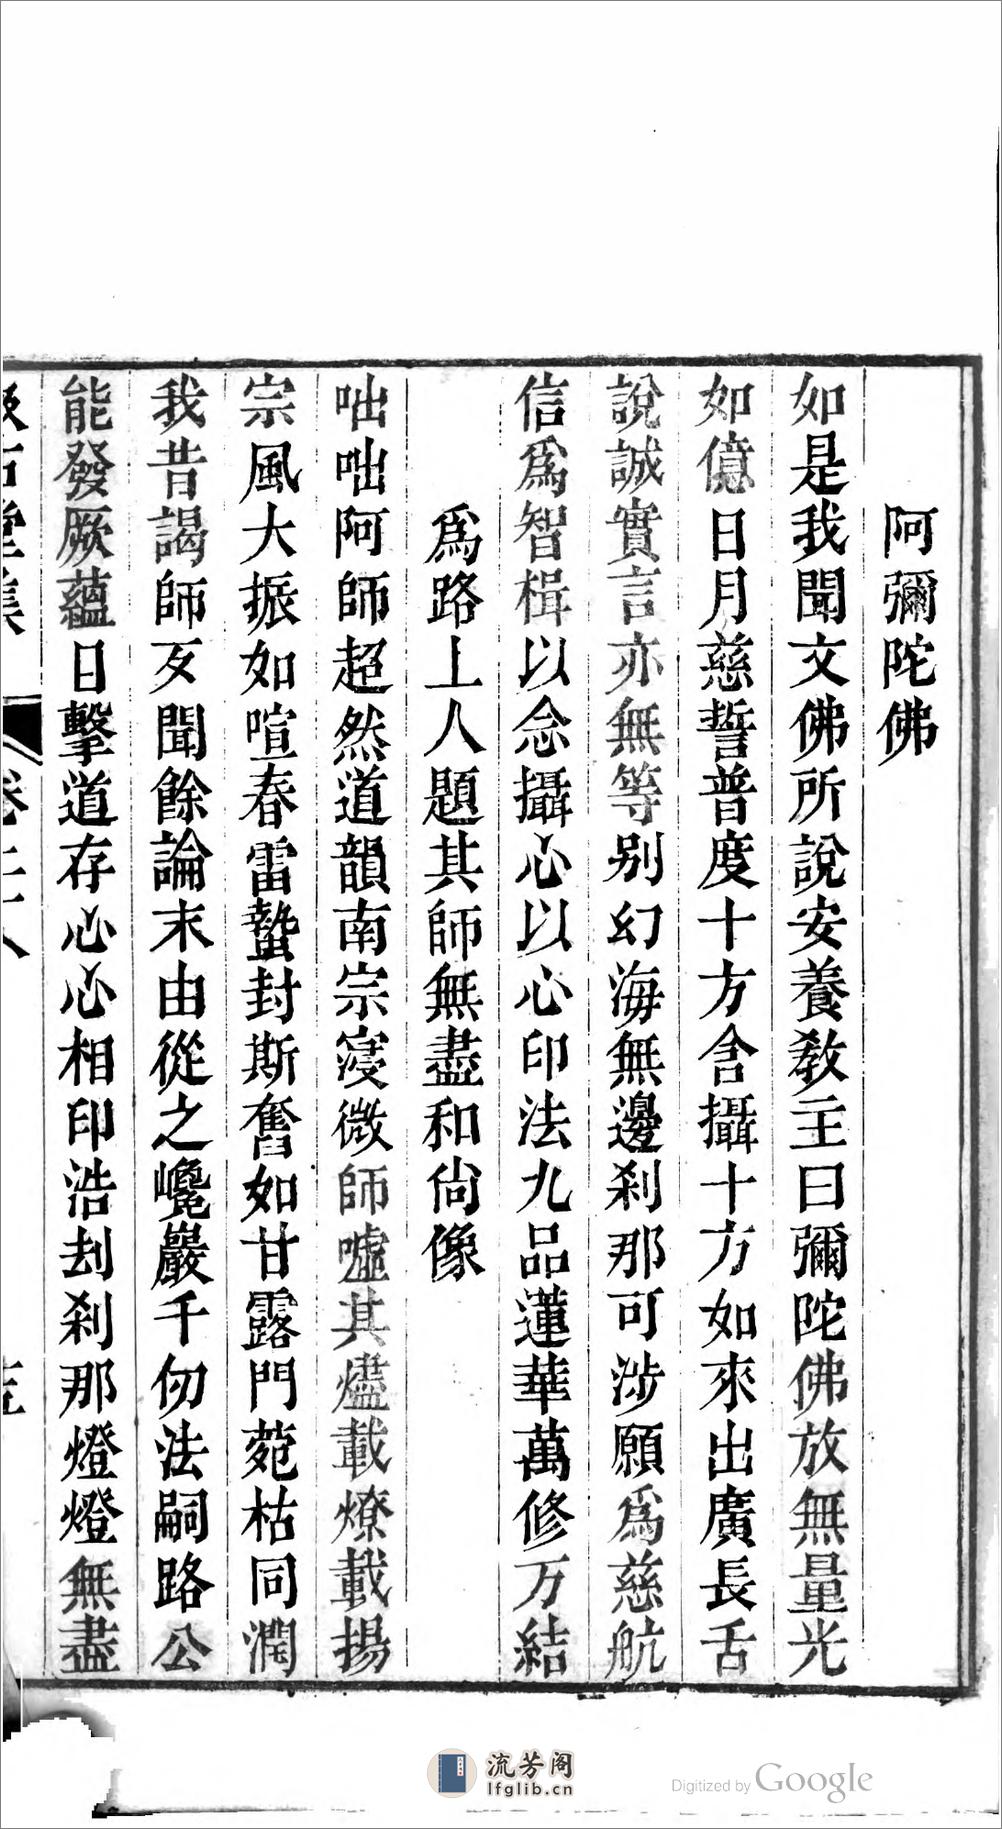 阿彌陀佛
如是我聞文佛所說安養教主曰彌陀佛放無量光
如億日月慈誓普度十方含攝十方如來出廣長舌
說誠實言亦無等别幻海無邊刹那可涉願爲慈航
信爲智楫以念攝心以心印法九品蓮華萬修万結
爲路上人題其師無盡和尙像
咄咄阿師超然道韻南宗寖微師噓其燼載燎載揚
宗風大振如喧春雷蟄封斯奮如甘露門菀枯同潤
我昔謁師亥聞餘論末由從之巉巖千仞法嗣路公
能發厥蘊日擊道存心心相印浩刦刹那燈燈無盡
石堂集 卷二十八
流芳阁
lfglib.cn
Digitized by Google